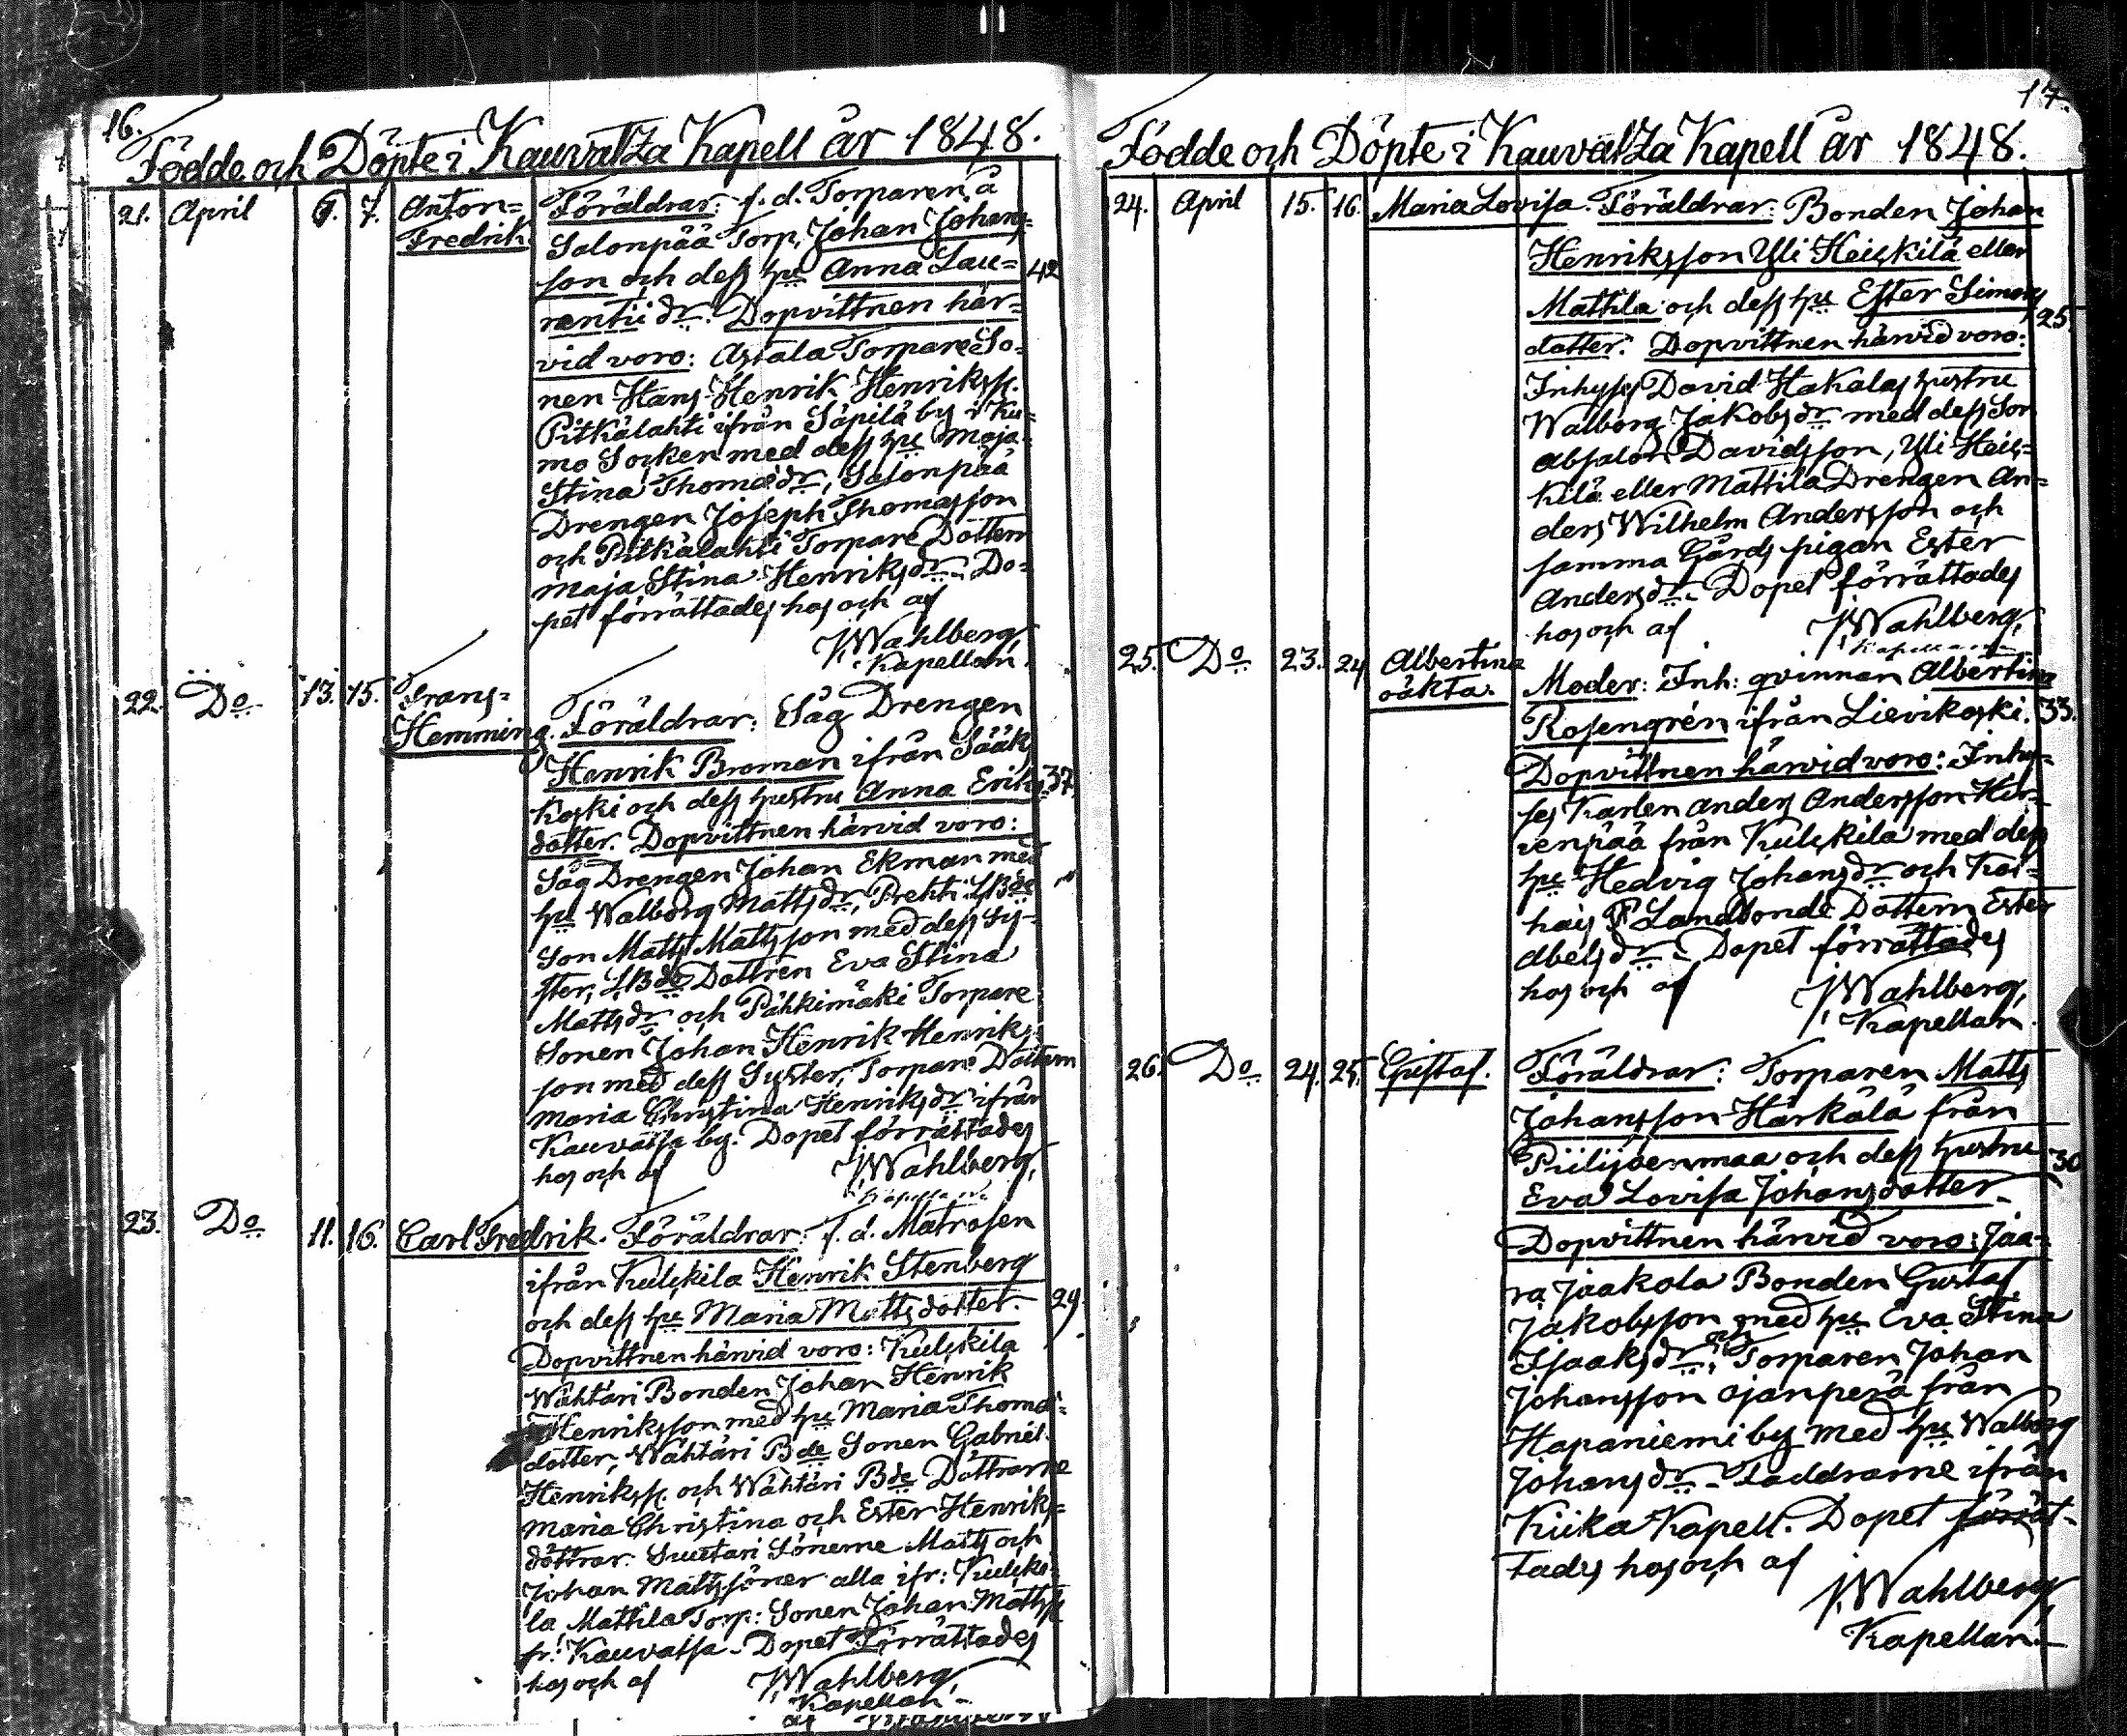 16.
Födde och Döpte i Kauvatza Kapell år 1848.
21. April 6. 7. Anton= Föräldrar: f. d. Torparen å
Fredrik. Salonpää Torp, Johan Johans=
son och dess hu Anna Lau= 42
rentii dr. Dopvittnen här=
vid voro: Astala Torpare So=
nen Hans Henrik Henrikss.
Pitkälahti ifrån Säpilä by i Ku=
mo Socken med dess hu Maja
Stina Thomædr, Salonpää
Drengen Joseph Thomasson
och Pitkälahti Torpare Dottern
Maja Stina Henriksdr. Do=
pet förrättades hos och af
J. Wahlberg,
Kapellan.
22. Do 13. 15. Frans=
Hemming. Föräldrar: Såg Drengen
Henrik Broman ifrån Sääks
koski och dess hustru Anna Eriks 37.
dotter. Dopvittnen härvid voro:
Såg Drengen Johan Ekman med
hu Walborg Mattsdr, Prehti LBde
Son Matts Mattsson med dess Sy=
ster, LBde Dottren Eva Stina
Mattsdr och Pähkimäki Torpare
Sonen Johan Henrik Henriks
son med dess Syster, Torpare Dottern
Maria Christina Henriksdr ifrån
Kauvatsa by. Dopet förrättades
hos och af J. Wahlberg,
Kapellan.
23. Do 11. 16. Carl Fredrik. Föräldrar: f. d. Matrosen
ifrån Kulskila Henrik Stenberg
och dess hu Maria Mattsdotter. 29.
Dopvittnen härvid voro: Kulskila
Wähtäri Bonden Johan Henrik
Henriksson med hu Maria Thomæ=
dotter, Wähtäri Bde Sonen Gabriel
Henrikss. och Wähtäri Bde Döttrarne
Maria Christina och Ester Henriks=
döttrar. Suutari Sönerne Matts och
Johan Mattssöner alla ifr: Kulski=
la Mattila Torp: Sonen Johan Mattss
fr: Kauvatsa. Dopet Förrättades
hos och af J. Wahlberg,
Kapellan.
17.
Födde och Döpte i Kauvatza Kapell år 1848.
24. April 15. 16. Maria Lovisa. Föräldrar: Bonden Johan
Henriksson Yli Heiskilä eller
Mattila och dess hu Ester Simons 25
dotter. Dopvittnen härvid voro:
Inhyses David Hakalas hustru
Walborg Jakobsdr med dess Son
Absalon Davidsson, Yli Heis=
kilä eller Mattila Drengen An=
ders Wilhelm Andersson och
samma Gårds pigan Ester
Andersdr. Dopet förrättades
hos och af J. Wahlberg,
Kapellan
25. Do 23. 24 Albertina
oäkta. Moder: Inh: qvinnan Albertina
Rosengrén ifrån Lievikoski. 33.
Dopvittnen härvid voro: Inhy=
ses Karlen Anders Andersson Hir=
venpää från Kulskila med dess
hu Hedvig Johansdr och Kot=
hais Landbonde Dottern Ester
Abelsdr. Dopet förrättades
hos och af J. Wahlberg,
Kapellan.
26. Do 24. 25. Gustaf. Föräldrar: Torparen Matts
Johansson Härkälä från
Piilijoenmaa och dess hustru 30
Eva Lovisa Johansdotter.
Dopvittnen härvid voro: Jaa=
ra Jaakola Bonden Gustaf
Jakobsson med hu Eva Stina
Isaaksdr, och Torparen Johan
Johansson Ojanperä från
Hapaniemi by med hu Walborg
Johansdr. Faddrarne ifrån
Kiika Kapell. Dopet förrät=
tades hos och af
J. Wahlberg,
Kapellan.